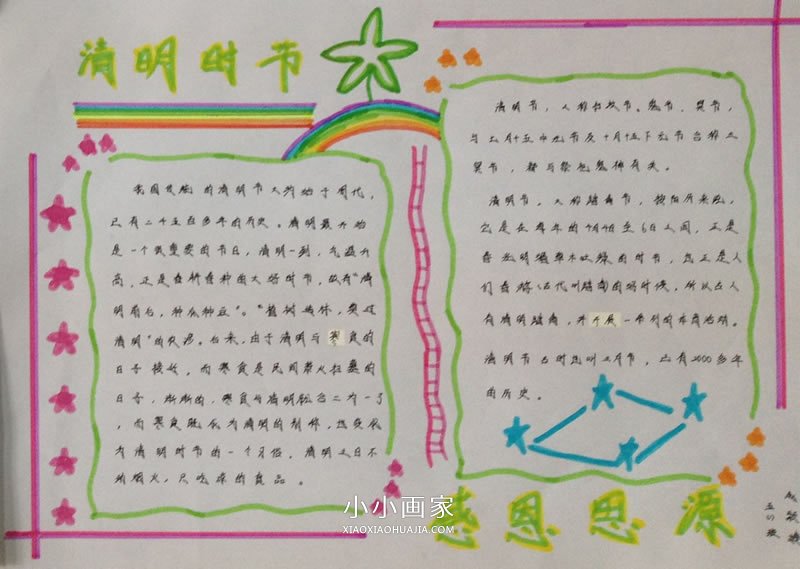 清明时节
我国传统的清明节大约始于周代，
已有二千五百多年的历史。清明最开始
是一个很重要的节日，清明一到，气温升
高，正是春耕春种的大好时节，故有“清
明前后，种瓜种豆”。“植树造林，莫过
清明”的农谚。后来，由于清明与寒食的
日子接近，而寒食是民间禁火扫墓的
日子，渐渐的，寒食与清明就合二为一了
，而寒食既成为清明的别称，也变成
为清明时节的一个习俗，清明之日不
动烟火，只吃凉的食品。
清明节，又称扫坟节、鬼节、冥节，
与七月十五中元节及十月十五下元节合称三
冥节，都与祭祀鬼神有关。
清明节，又称踏青节，按阳历来说，
它是在每年的4月4日至6日之间，正是
春光明媚草木吐绿的时节，也正是人
们春游（古代叫踏青）的好时候，所以古人
有清明踏青，并开展一系列的体育活动。
清明节古时也叫三月节，已有2000多年
的历史。
感恩思源
五(1)班
小小画家
XIAOXIAOHUAJIA.COM